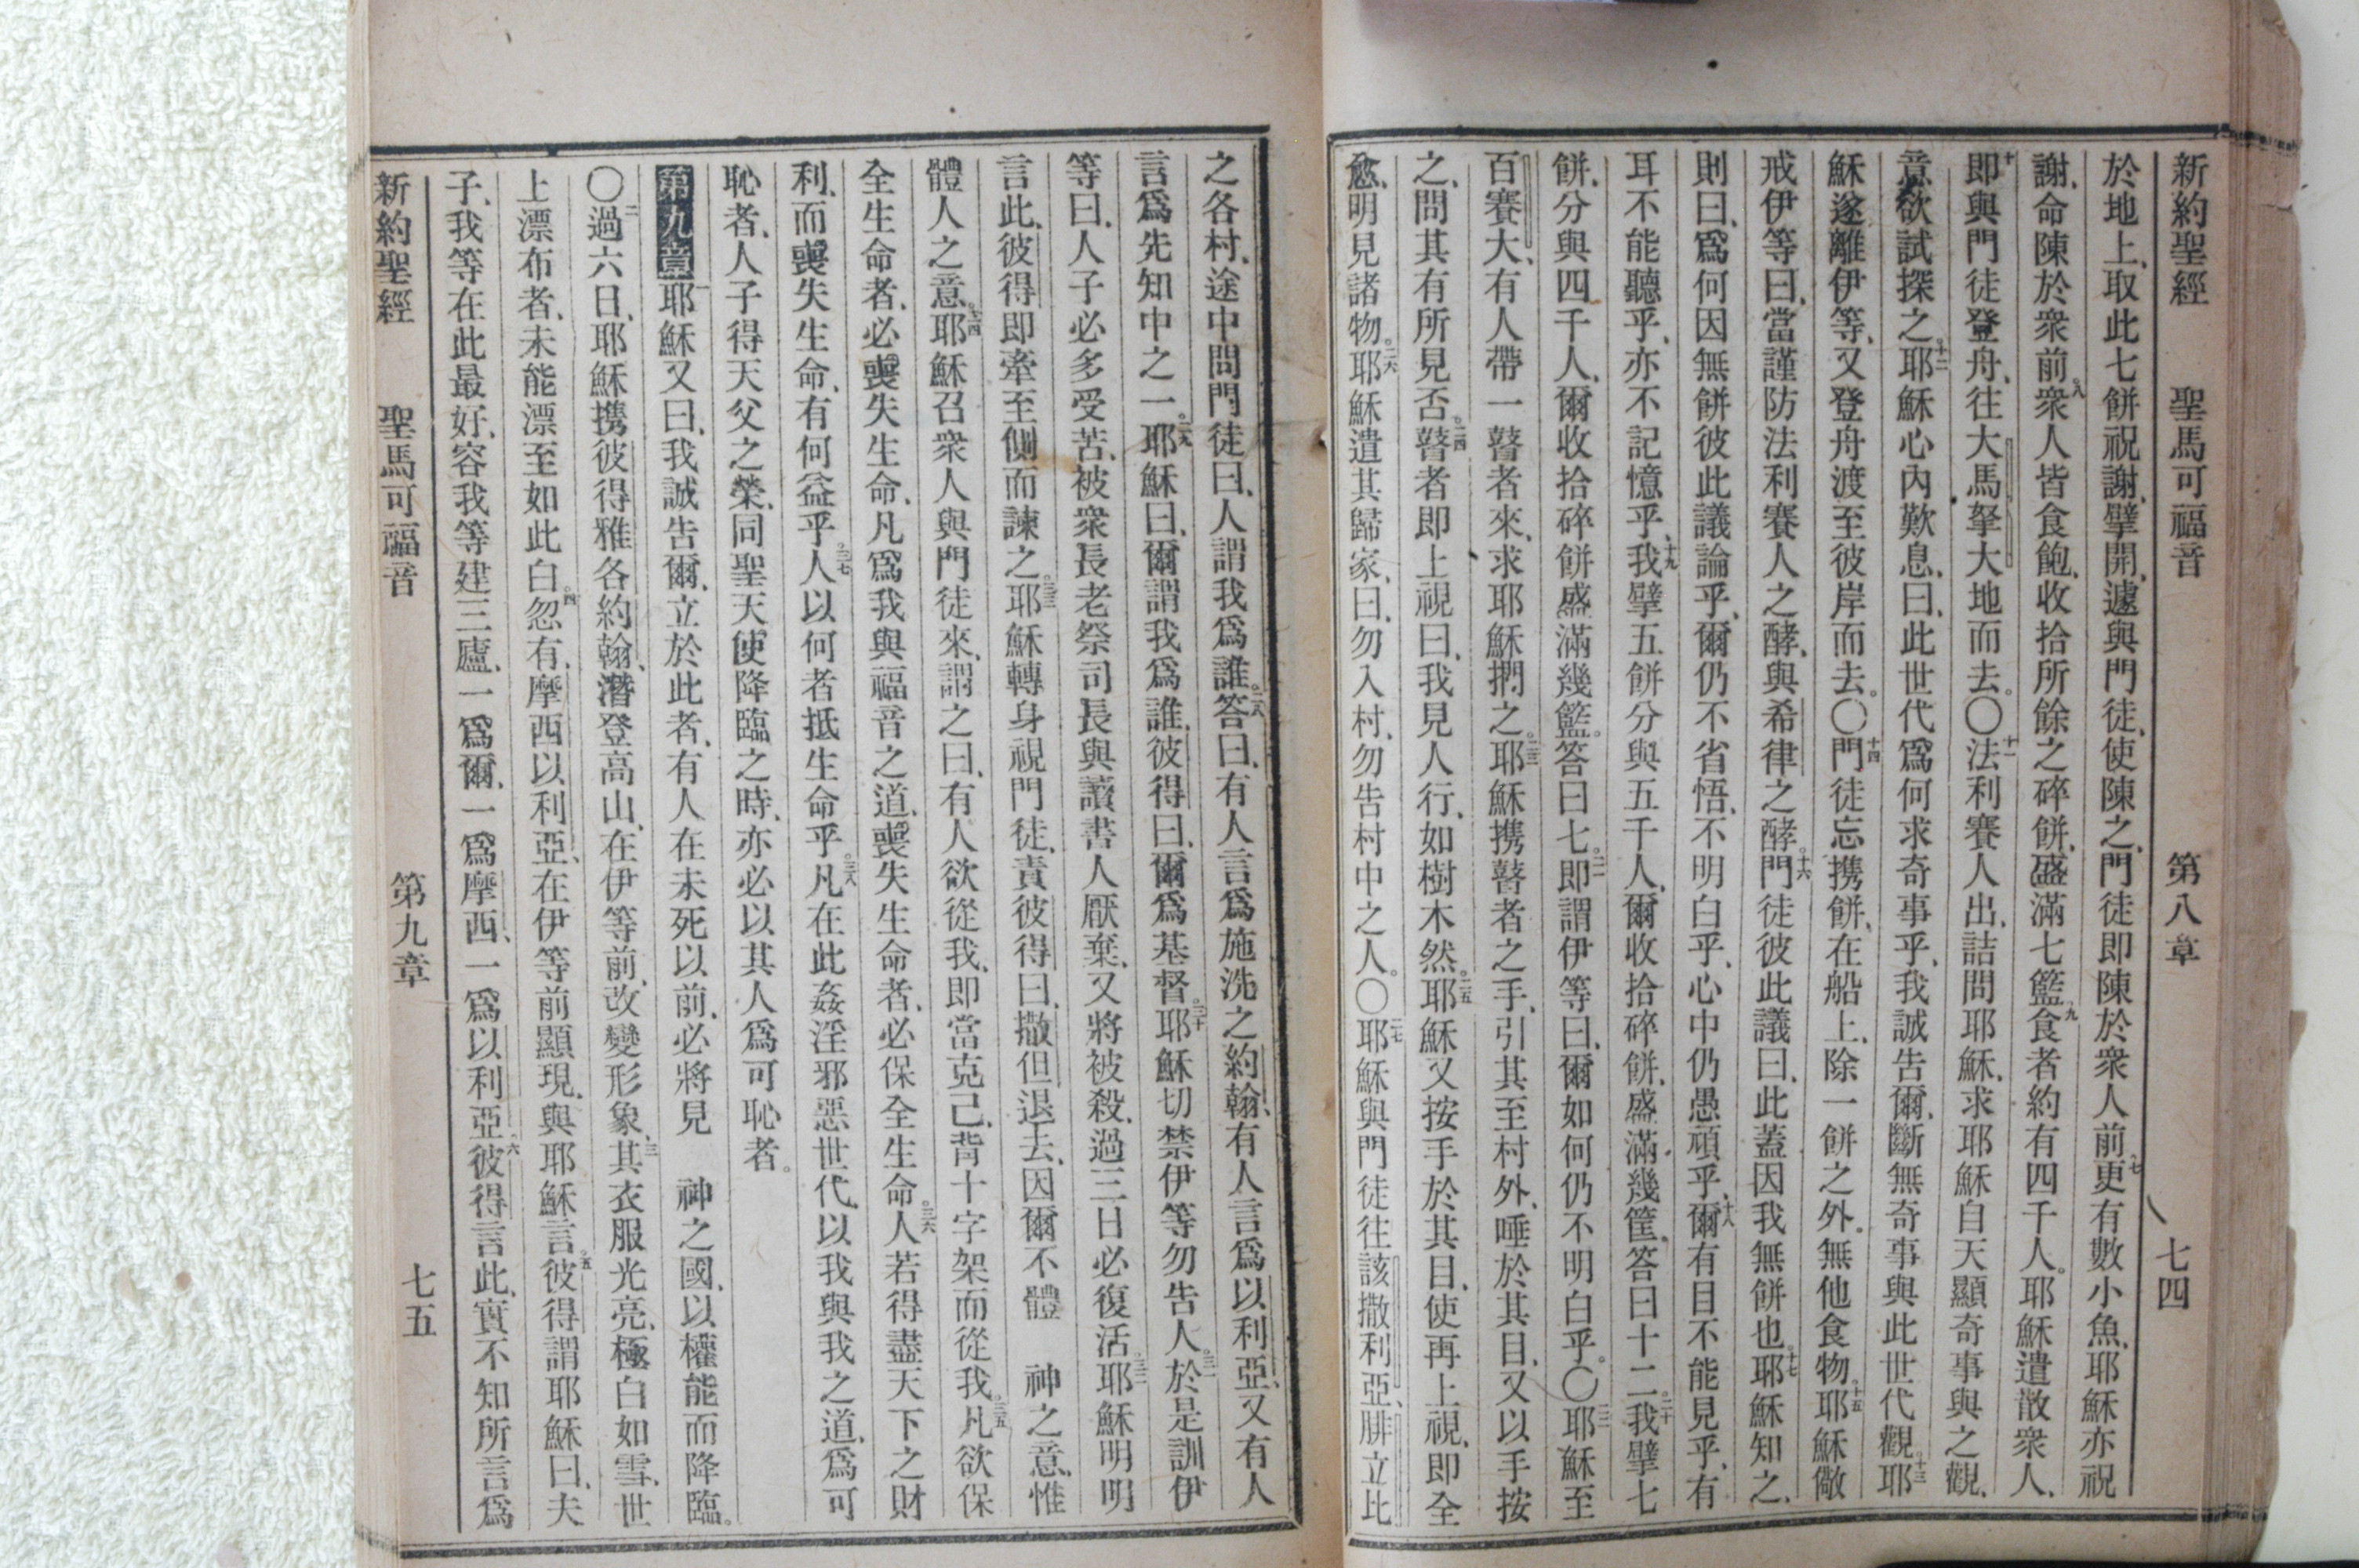 新約聖經 聖馬可福音 第八章 七四
於地上、取此七餅祝謝、擘開、遽與門徒、使陳之、門徒即陳於衆人前。七更有數小魚、耶穌亦祝
謝、命陳於衆前。八衆人皆食飽、收拾所餘之碎餅、盛滿七籃。九食者約有四千人。耶穌遣散衆人、
十即與門徒登舟、往大馬拏大地而去。〇十一法利賽人出、詰問耶穌、求耶穌自天顯奇事與之觀、
意欲試探之。十二耶穌心內歎息、曰、此世代爲何求奇事乎、我誠告爾、斷無奇事與此世代觀。十三耶
穌遂離伊等、又登舟渡至彼岸而去。〇十四門徒忘攜餅、在船上、除一餅之外。無他食物。十五耶穌儆
戒伊等曰、當謹防法利賽人之酵、與希律之酵。十六門徒彼此議曰、此蓋因我無餅也。十七耶穌知之、
則曰、爲何因無餅彼此議論乎、爾仍不省悟、不明白乎、心中仍愚頑乎、十八爾有目不能見乎、有
耳不能聽乎、亦不記憶乎、十九我擘五餅分與五千人、爾收拾碎餅、盛滿幾筐。答曰十二。二十我擘七
餅、分與四千人、爾收拾碎餅盛滿幾籃。答曰七。二一即謂伊等曰、爾如何仍不明白乎。〇二二耶穌至
百賽大、有人帶一瞽者來、求耶穌捫之。二三耶穌攜瞽者之手、引其至村外、唾於其目、又以手按
之、問其有所見否。二四瞽者即上視曰、我見人行、如樹木然。二五耶穌又按手於其目、使再上視、即全
愈、明見諸物。二六耶穌遣其歸家、曰、勿入村、勿告村中之人。〇二七耶穌與門徒往該撒利亞、腓立比
之各村、途中問門徒曰、人謂我爲誰。二八答曰、有人言爲施洗之約翰、有人言爲以利亞、又有人
言爲先知中之一。二九耶穌曰、爾謂我爲誰、彼得曰、爾爲基督。三十耶穌切禁伊等勿告人。三一於是訓伊
等曰、人子必多受苦、被衆長老祭司長與讀書人厭棄、又將被殺、過三日必復活。三二耶穌明明
言此、彼得即牽至側而諫之。三三耶穌轉身視門徒、責彼得曰、撒但退去、因爾不體 神之意、惟
體人之意。三四耶穌召衆人與門徒來、謂之曰、有人欲從我、即當克己、背十字架而從我。三五凡欲保
全生命者、必喪失生命、凡爲我與福音之道、喪失生命者、必保全生命。三六人若得盡天下之財
利、而喪失生命、有何益乎。三七人以何者抵生命乎。三八凡在此姦淫邪惡世代、以我與我之道、爲可
恥者、人子得天父之榮、同聖天使降臨之時、亦必以其人爲可恥者。
第九章 一耶穌又曰、我誠告爾、立於此者、有人在未死以前、必將見 神之國、以權能而降臨。
〇二過六日、耶穌攜彼得雅各約翰、潛登高山、在伊等前、改變形象、三其衣服光亮、極白如雪、世
上漂布者、未能漂至如此白。四忽有摩西以利亞、在伊等前顯現、與耶穌言。五彼得謂耶穌曰、夫
子、我等在此最好、容我等建三廬、一爲爾、一爲摩西、一爲以利亞。六彼得言此、實不知所言爲
新約聖經 聖馬可福音 第九章 七五